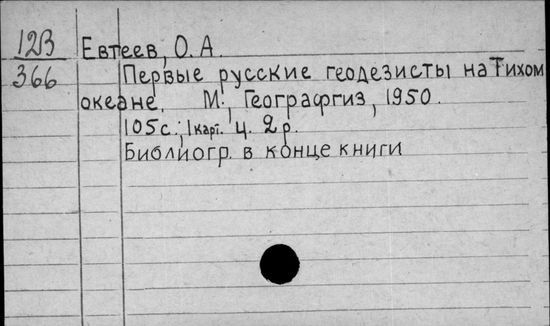 12В Евтеев, О. А.
366 Первые русские геодезисты на Тихом
океане. М., Географгиз, 1950.
105с.; 1карт. Ц. 2 р.
Библиогр. в конце книги